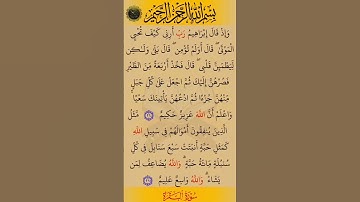 بسم الله الرحمن الرحيم
وَإِذْ قَالَ إِبْرَاهِيمُ رَبِّ أَرِنِي كَيْفَ تُحْيِي
الْمَوْتَىٰ قَالَ أَوَلَمْ تُؤْمِن قَالَ بَلَىٰ وَلَٰكِن
لِّيَطْمَئِنَّ قَلْبِي قَالَ فَخُذْ أَرْبَعَةً مِّنَ الطَّيْرِ
فَصُرْهُنَّ إِلَيْكَ ثُمَّ اجْعَلْ عَلَىٰ كُلِّ جَبَلٍ
مِّنْهُنَّ جُزْءًا ثُمَّ ادْعُهُنَّ يَأْتِينَكَ سَعْيًا
وَاعْلَمْ أَنَّ اللَّهَ عَزِيزٌ حَكِيمٌ مَّثَلُ
الَّذِينَ يُنفِقُونَ أَمْوَالَهُمْ فِي سَبِيلِ اللَّهِ
كَمَثَلِ حَبَّةٍ أَنبَتَتْ سَبْعَ سَنَابِلَ فِي كُلِّ
سُنبُلَةٍ مِّائَةُ حَبَّةٍ وَاللَّهُ يُضَاعِفُ لِمَن
يَشَاءُ وَاللَّهُ وَاسِعٌ عَلِيمٌ
سورة البقرة